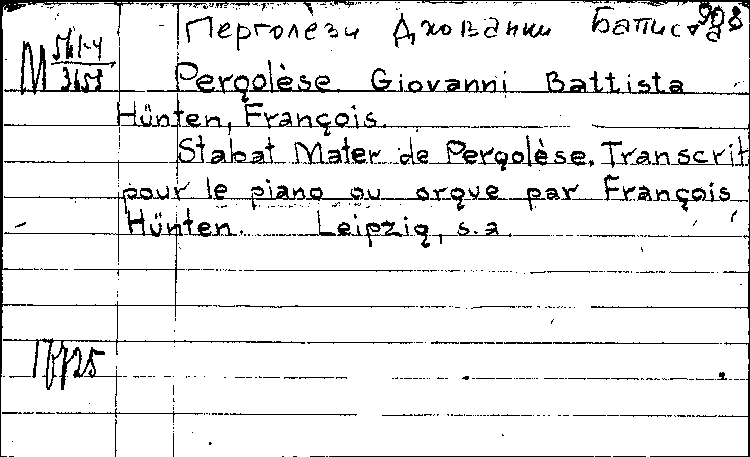 Перголези Джованни Батиста 908
М 561-4
3653
Pergolèse Giovanni Battista
Hünten, François.
Stabat Mater de Pergolèse. Transcrit
pour le piano ou orgue par François
Hünten. Leipzig, s.a.